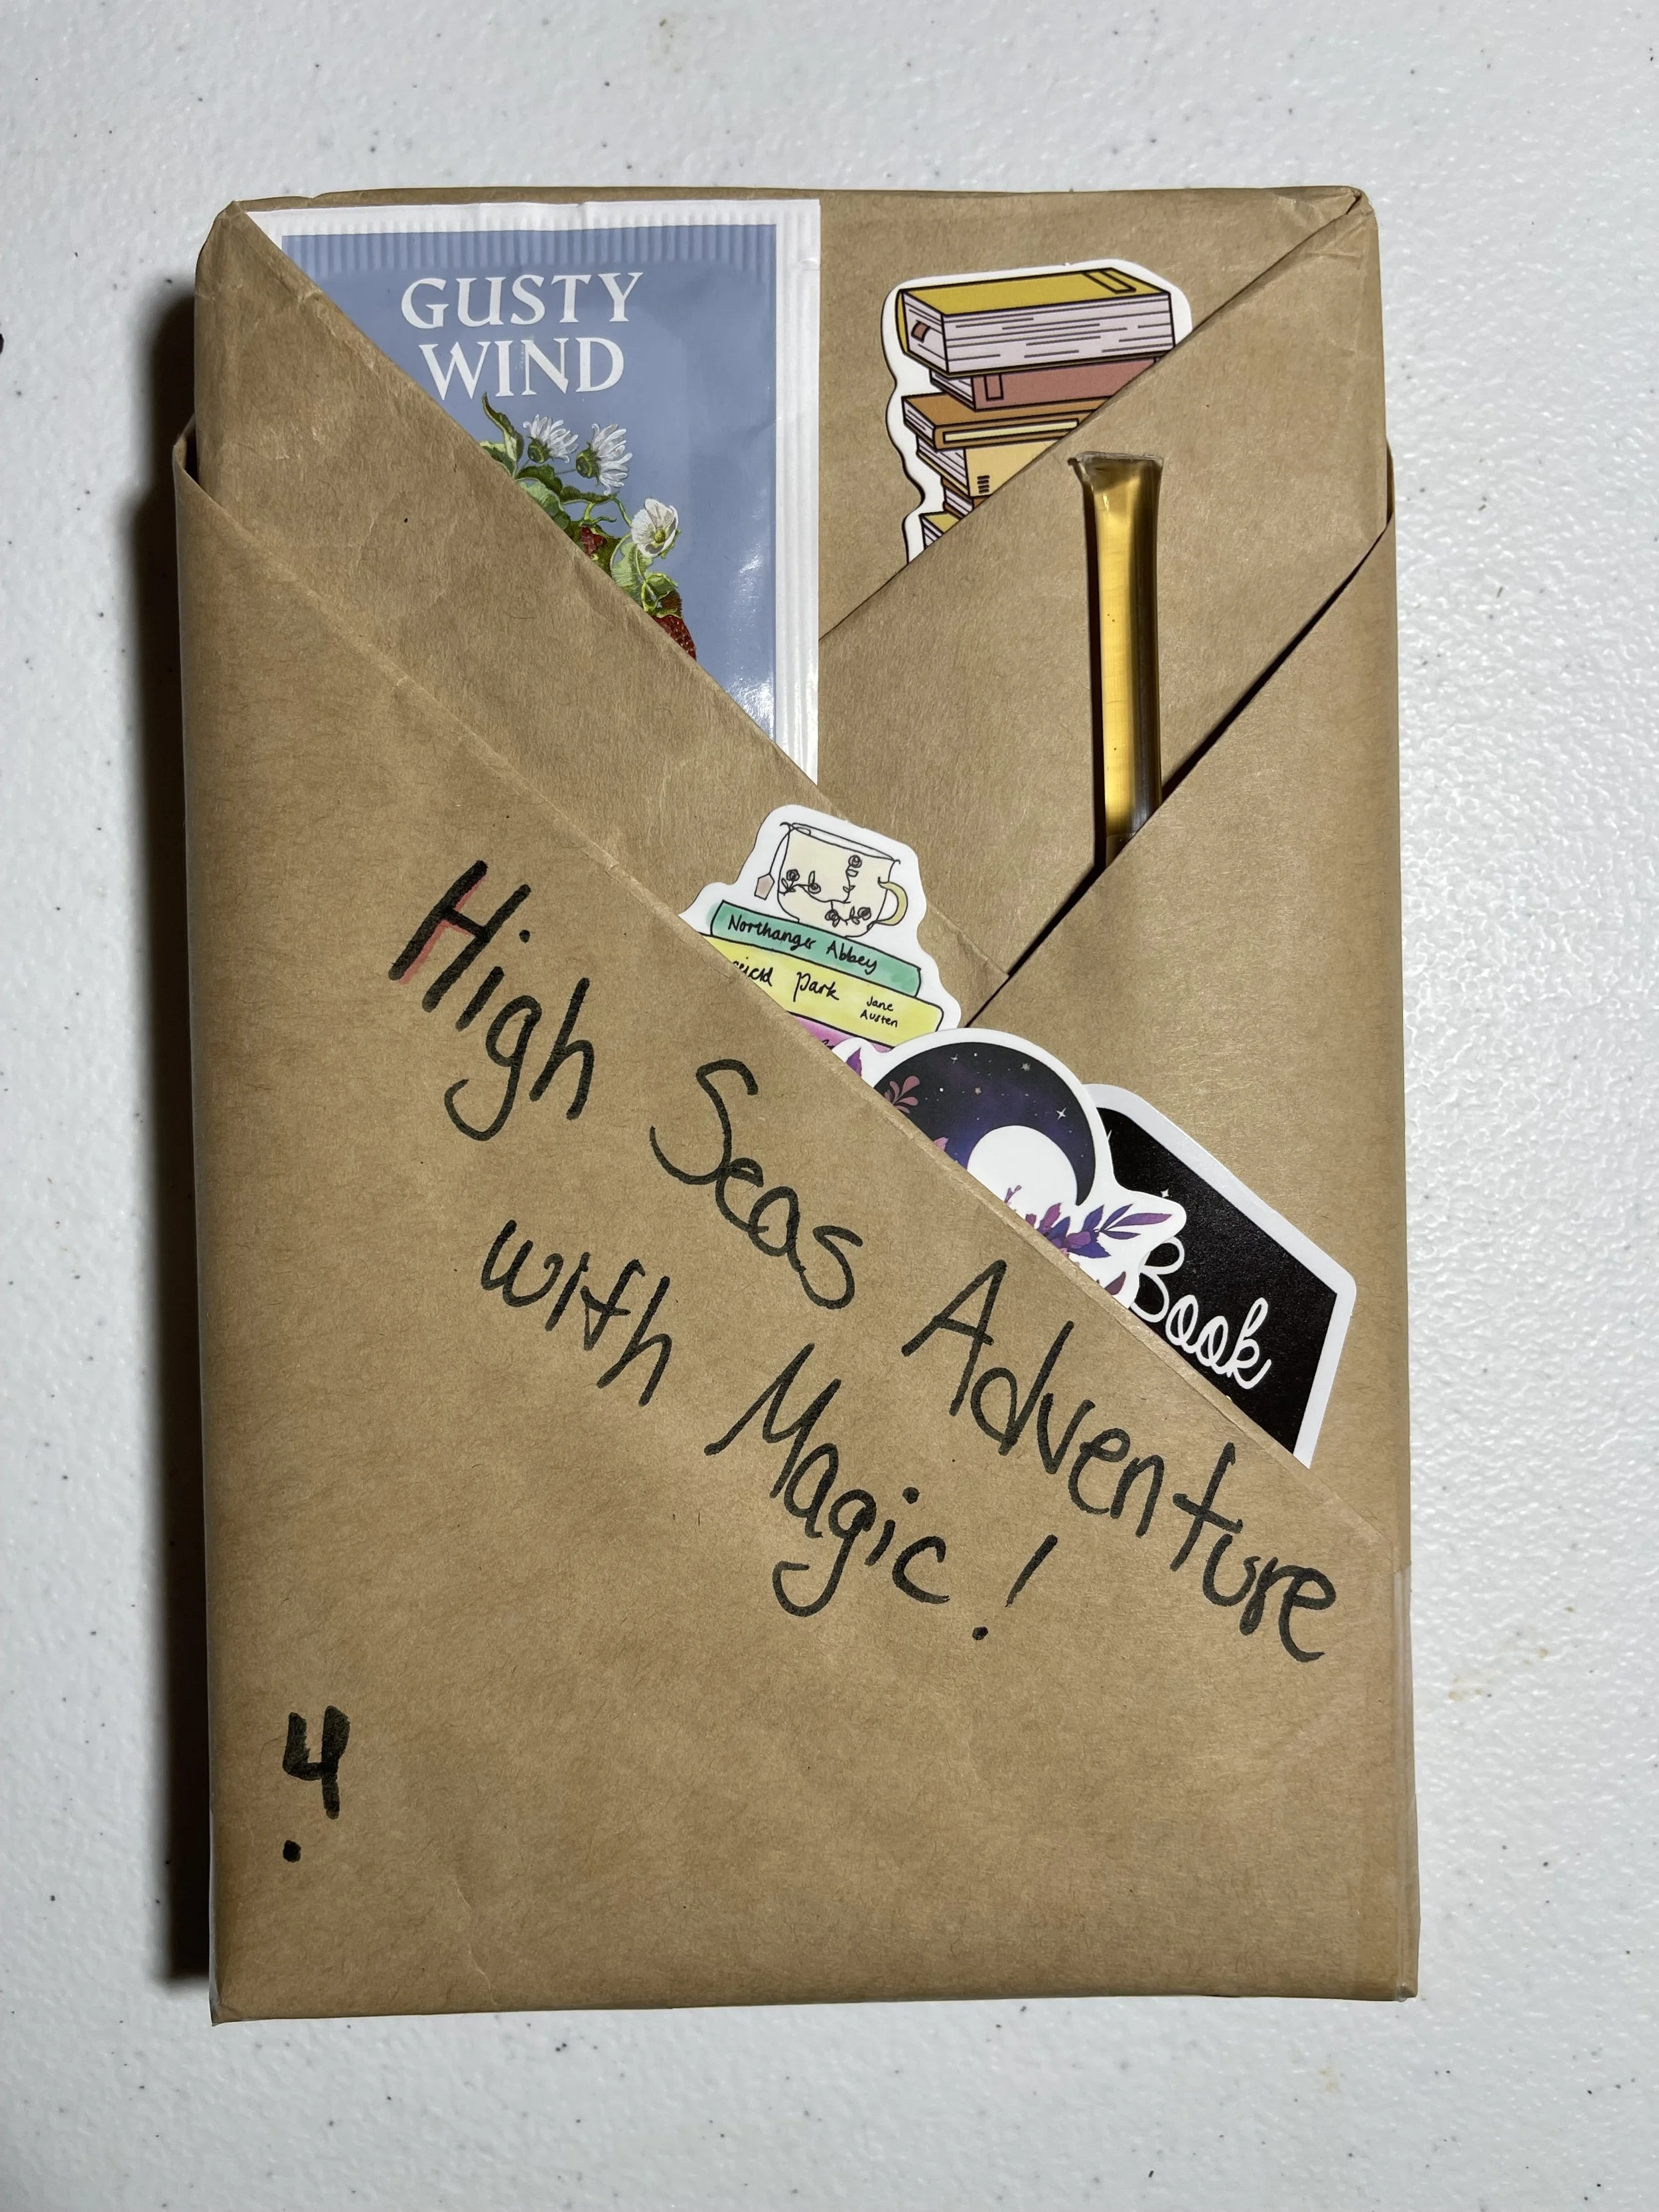 GUSTY
WIND
Northanger Abbey
Park
Jane
Austen
Book
High Seas Adventure
with Magic!
4.